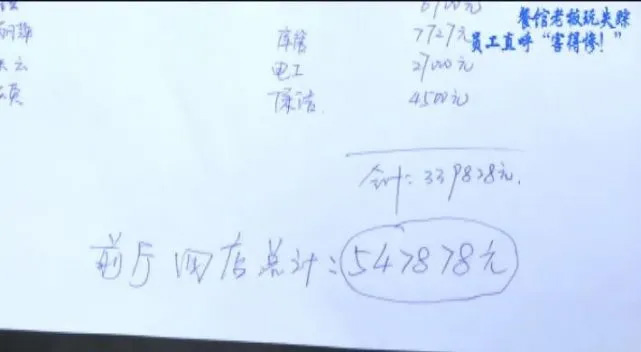 餐馆老板玩失踪
员工直呼“害得惨！”
萍 库管 7727元
云 电工 27000元
保洁 4500元
合计：339878元.
前厅四店总计：547878元